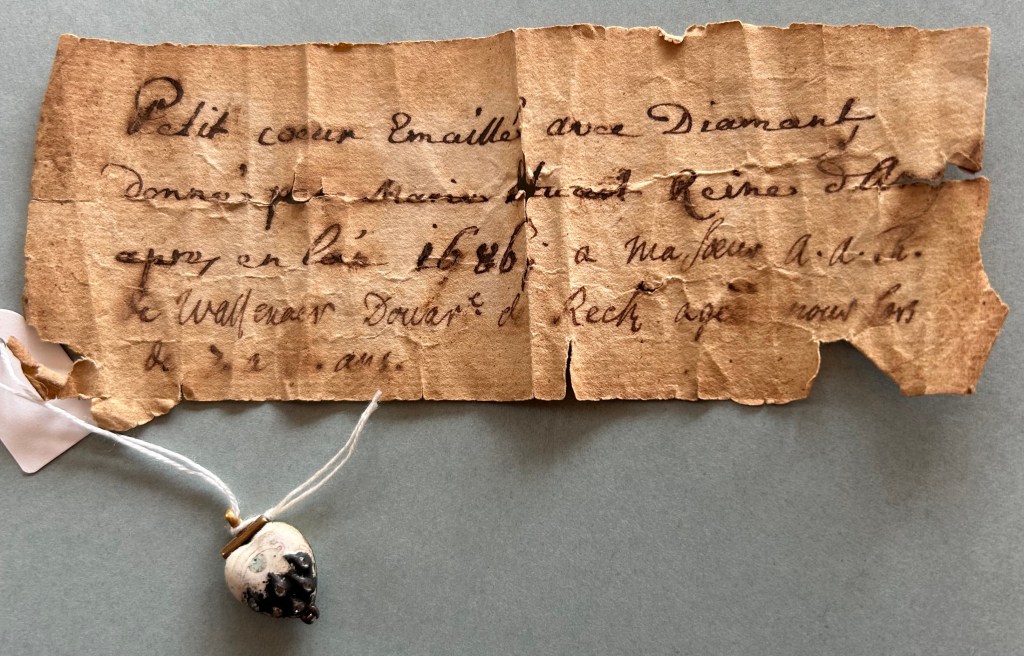 Petit coeur Emaillé avec Diamant
Donné par Marie Stuart Reine d'An
apres en l'an 1686 a ma soeur A.A.
de Wassenaer Douar.e d Reck agé nous lors
de ans.